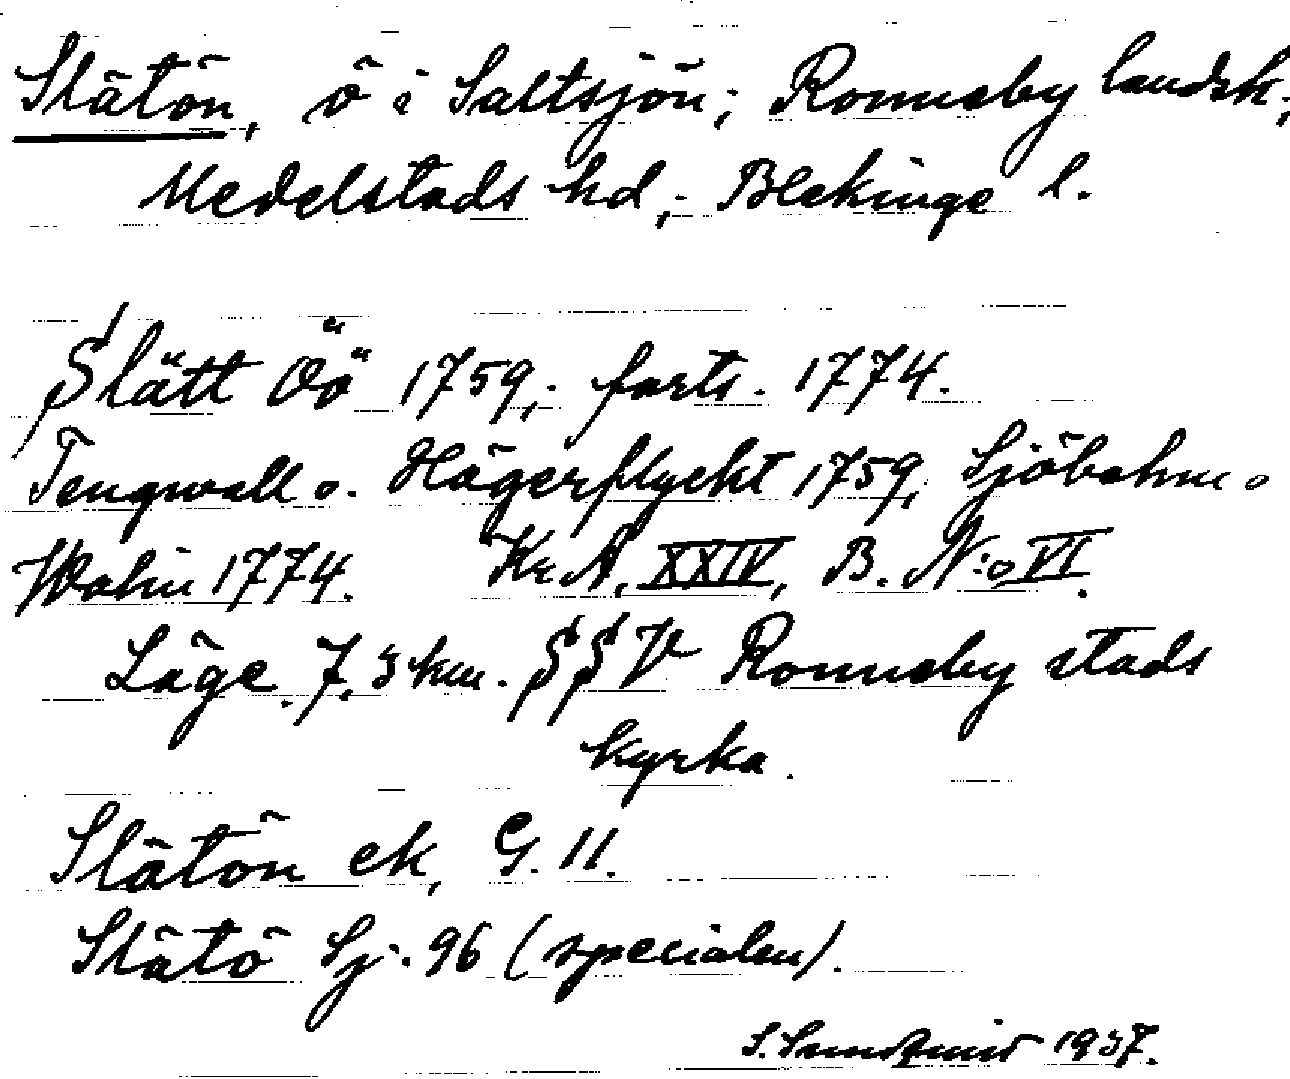 Slätön, ö i Saltsjön; Ronneby landsk.;
Medelstads hd; Blekinge l.
Slätt Öö 1759; forts. 1774.
Tengwall o. Hägerflycht 1759, Sjöbohm o
Wahin 1774. Kr A. XXIV, B. N:o VI.
Läge 7,3 km. SSV Ronneby stads
kyrka.
Slätön ek, G. 11.
Slätö Sj. 96 (specialen).
S. Sundqvist 1937.